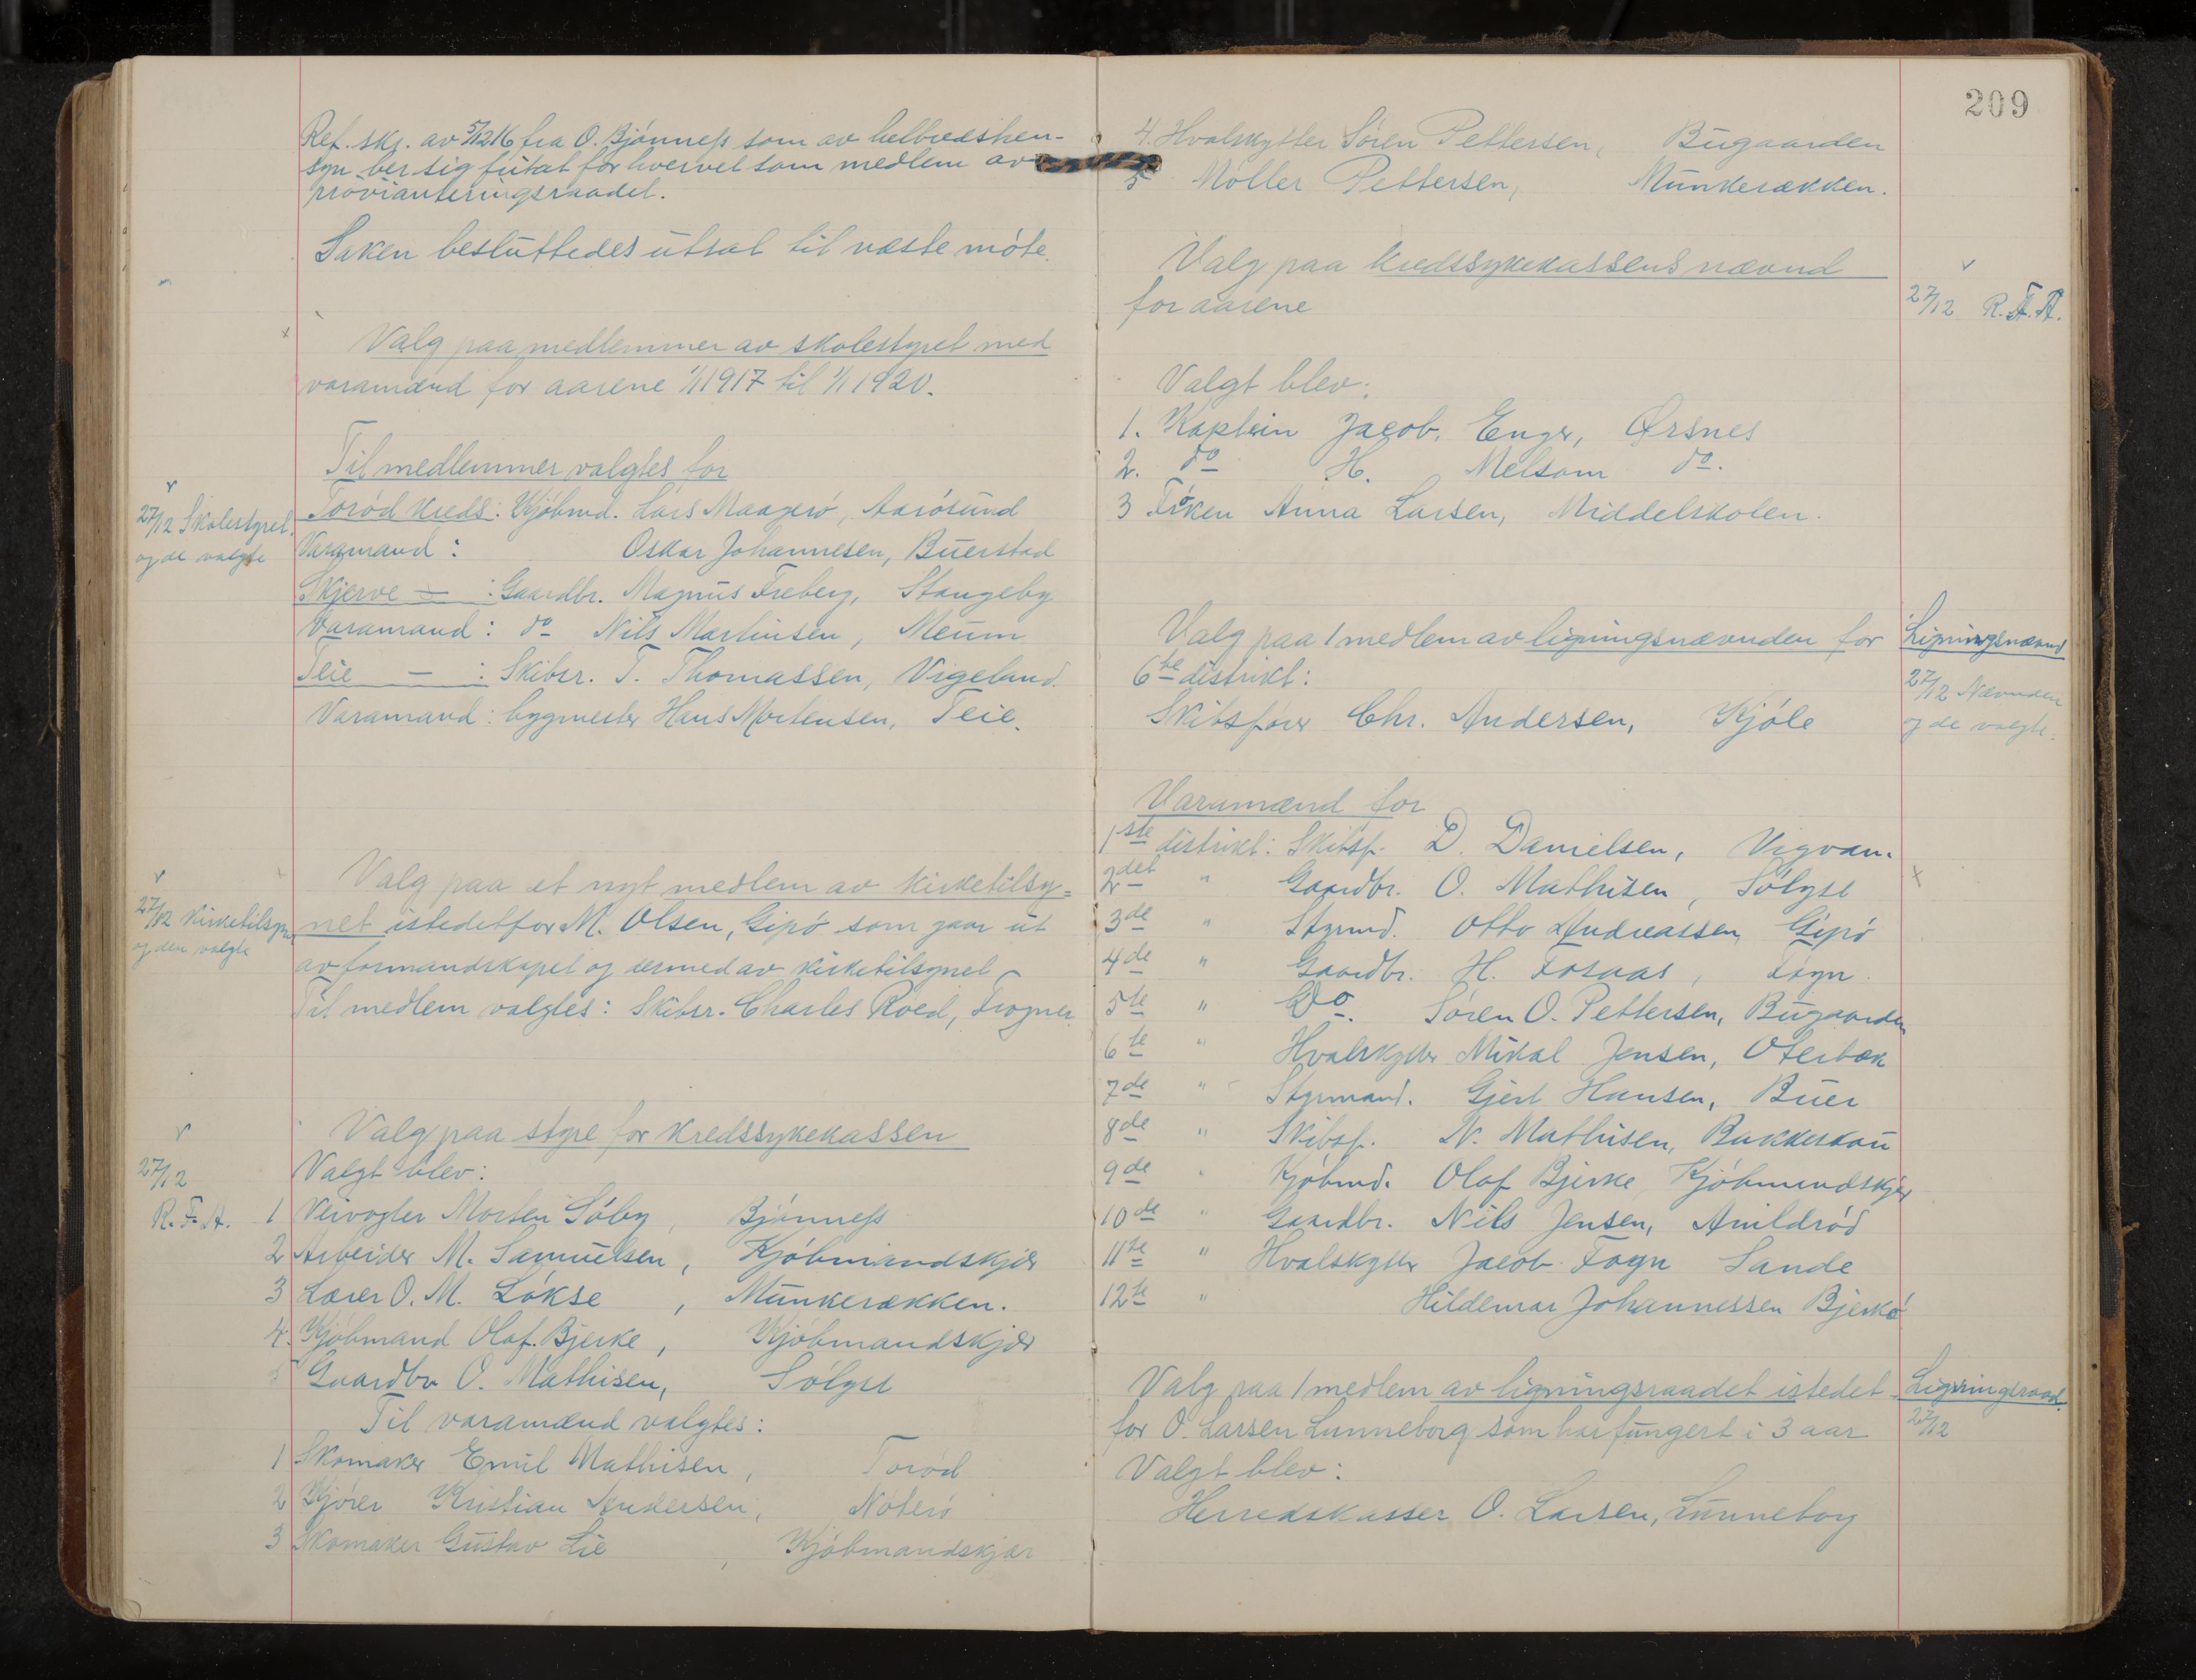 Ref. skr. av 5/12 16 fra O. Bjönness som av helbredshen-
syn ber sig fritat for hvervet som medlem av
provianteringsraadet.
Saken besluttedes utsat til næste möte.
Valg paa medlemmer av skolestyret med
varamænd for aarene 1/1 1917 til 1/1 1920.
Til medlemmer valgtes for
27/12 Skolestyret
og de valgte
Torød kreds: Kjöbmd. Lars Maagerö, Aarösund
Varamand: Oskar Johannesen, Buerstad
Skjerve — : Gaardbr. Magnus Freberg, Stangeby
Varamand: do Nils Martinsen, Meum
Teie — : Skibsr. T. Thomassen, Vigeland.
Varamand: bygmester Hans Mortensen, Teie.
Valg paa et nyt medlem av kirketilsy=
27/12 kirketilsyn
og den valgte
net istedetfor M. Olsen, Gipö som gaar ut
av formandskapet og dermed av kirketilsynet
Til medlem valgtes: Skibsr. Charles Roed, Frogner.
Valg paa styre for kredssykekassen
27/12
R. F. A.
Valgt blev:
1 Veivogter Morten Söby, Bjönness
2 Arbeider M. Samuelsen, Kjöbmandskjær
3 Lærer O. M. Lökse, Munkerækken.
4. Kjöbmand Olaf Bjerke, Kjöbmandskjær
5 Gaardbr O. Mathisen, Sölyst
Til varamænd valgtes:
1 Skomaker Emil Mathisen, Toröd
2 Kjörer Kristian Andersen, Nöterö
3 Skomaker Gustav Lie, Kjöbmandskjær
209
4. Hvalskytter Sören Pettersen, Bugaarden
5 Möller Pettersen, Munkerækken.
Valg paa kredssykekassens nævnd
for aarene
27/12 R. F. A.
Valgt blev:
1. Kaptein Jacob. Enger, Ørsnes
2. do H. Melsom do.
3 Fröken Anna Larsen, Middelskolen.
Valg paa 1 medlem av ligningsnævnden for
6te distrikt:
Skibsfører Chr. Andersen, Kjöle
Ligningsnævnd
27/12 Nævnden
og de valgte.
Varamænd for
1ste distrikt: Skibsf. D. Danielsen, Vigvan.
2det " Gaardbr. O. Mathisen, Sölyst
3de " Styrmd. Otto Andreassen Gipö
4de " Gaardbr. H. Fosaas, Fögn.
5te " Do. Sören O. Pettersen, Bugaarden
6te " Hvalskytter Mikal Jensen, Oterbæk
7de " Styrmand. Gjert Hansen, Buer
8de " Skibsf. N. Mathisen, Bakkeskau
9de " Kjöbmd. Olaf Bjerke, Kjöbmandskjær
10de " Gaardbr. Nils Jensen, Amildröd
11te " Hvalskytter Jacob Fögn Sande
12te " Hildemar Johannessen Bjerkö
Valg paa 1 medlem av ligningsraadet istedet
for O. Larsen Lunneborg som har fungert i 3 aar
Ligningsraad.
27/12
Valgt blev:
Herredskasser O. Larsen, Lunneborg